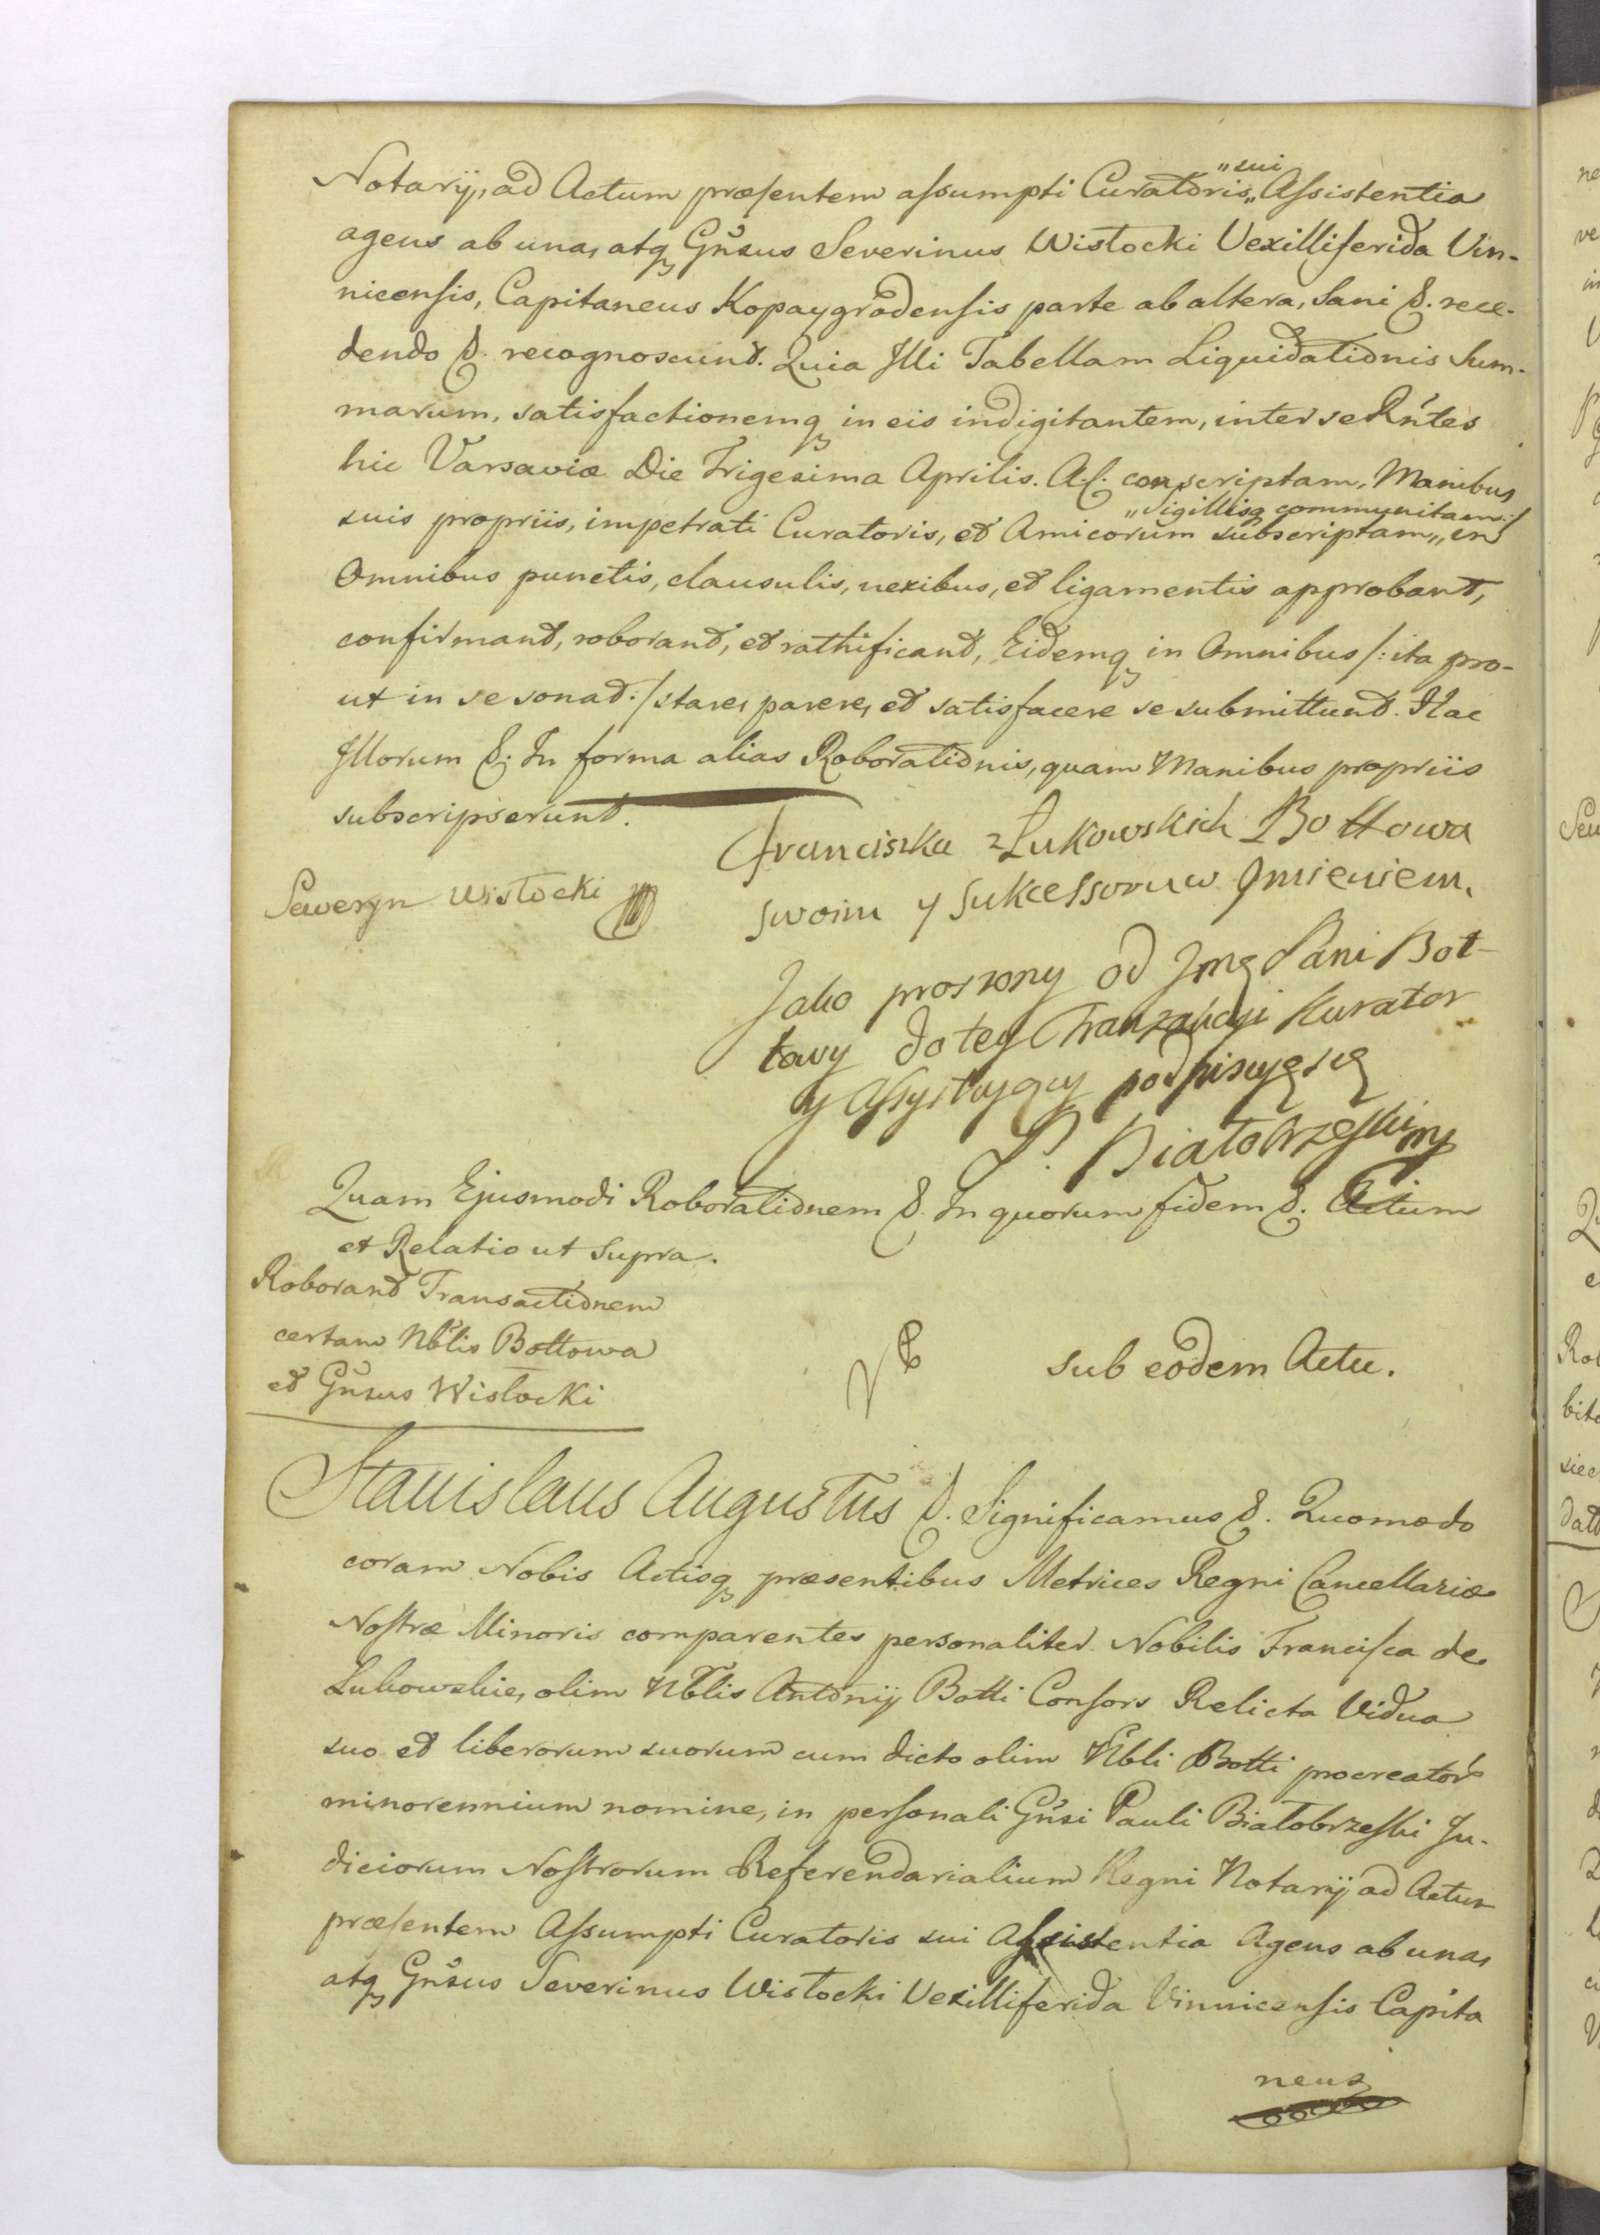 Notarij, ad Actum præsentem assumpti Curatoris „sui„ Assistentia
agens ab una, atq Gnsus Severinus Wisłocki Vexilliferida Vin-
nicensis, Capitaneus Kopaygrodensis parte ab altera, Sani &. rece-
dendo &. recognoscunt. Quia Illi Tabellam Liquidationis Sum-
marum, satisfactionemq in eis indigitantem, inter se Rntes
hic Varsaviæ Die Trigesima Aprilis. A.C. conscriptam, Manibus
suis propriis, impetrati Curatoris, et Amicorum subscriptam, „Sigillisq communitam:/ in
Omnibus punctis, clausulis, nexibus, et ligamentis approbant,
confirmant, roborant, et rathificant, Eidemq in Omnibus /:ita pro-
ut in se sonat:/ stare, parere, et satisfacere se submittunt. Hac
Illorum &. In forma alias Roborationis, quam Manibus propriis
subscripserunt.
Franciszka z Łukowskich Bottowa
swoim y Sukcessoruw Jmieniem.
Seweryn Wisłocki
Jako proszony od Jmę Pani Bot-
towy do tey Tranzakcyi Kurator
y Assystuyący podpisuyę się
P. Białobrzeski mp
Quam Ejusmodi Roborationem &. In quorum fidem &. Actum
et Relatio ut Supra.
Roborant Transactionem
certam Nblis Bottowa
et Gnsus Wisłocki
sub eodem Actu.
Stanislaus Augustus &. Significamus &. Quomodo
coram Nobis Actisq præsentibus Metrices Regni Cancellariæ
Nostræ Minoris comparentes personaliter Nobilis Francisca de
Łukowskie, olim Nblis Antonij Botti Consors Relicta Vidua
suo et liberorum suorum cum dicto olim Nbli Botti procreator
minorennium nomine, in personali Gnsi Pauli Białobrzeski Ju-
diciorum Nostrorum Referendarialium Regni Notarij ad Actum
præsentem Assumpti Curatoris sui Assistentia Agens ab una,
atq Gnsus Severinus Wisłocki Vexilliferida Vinnicensis Capita
neus